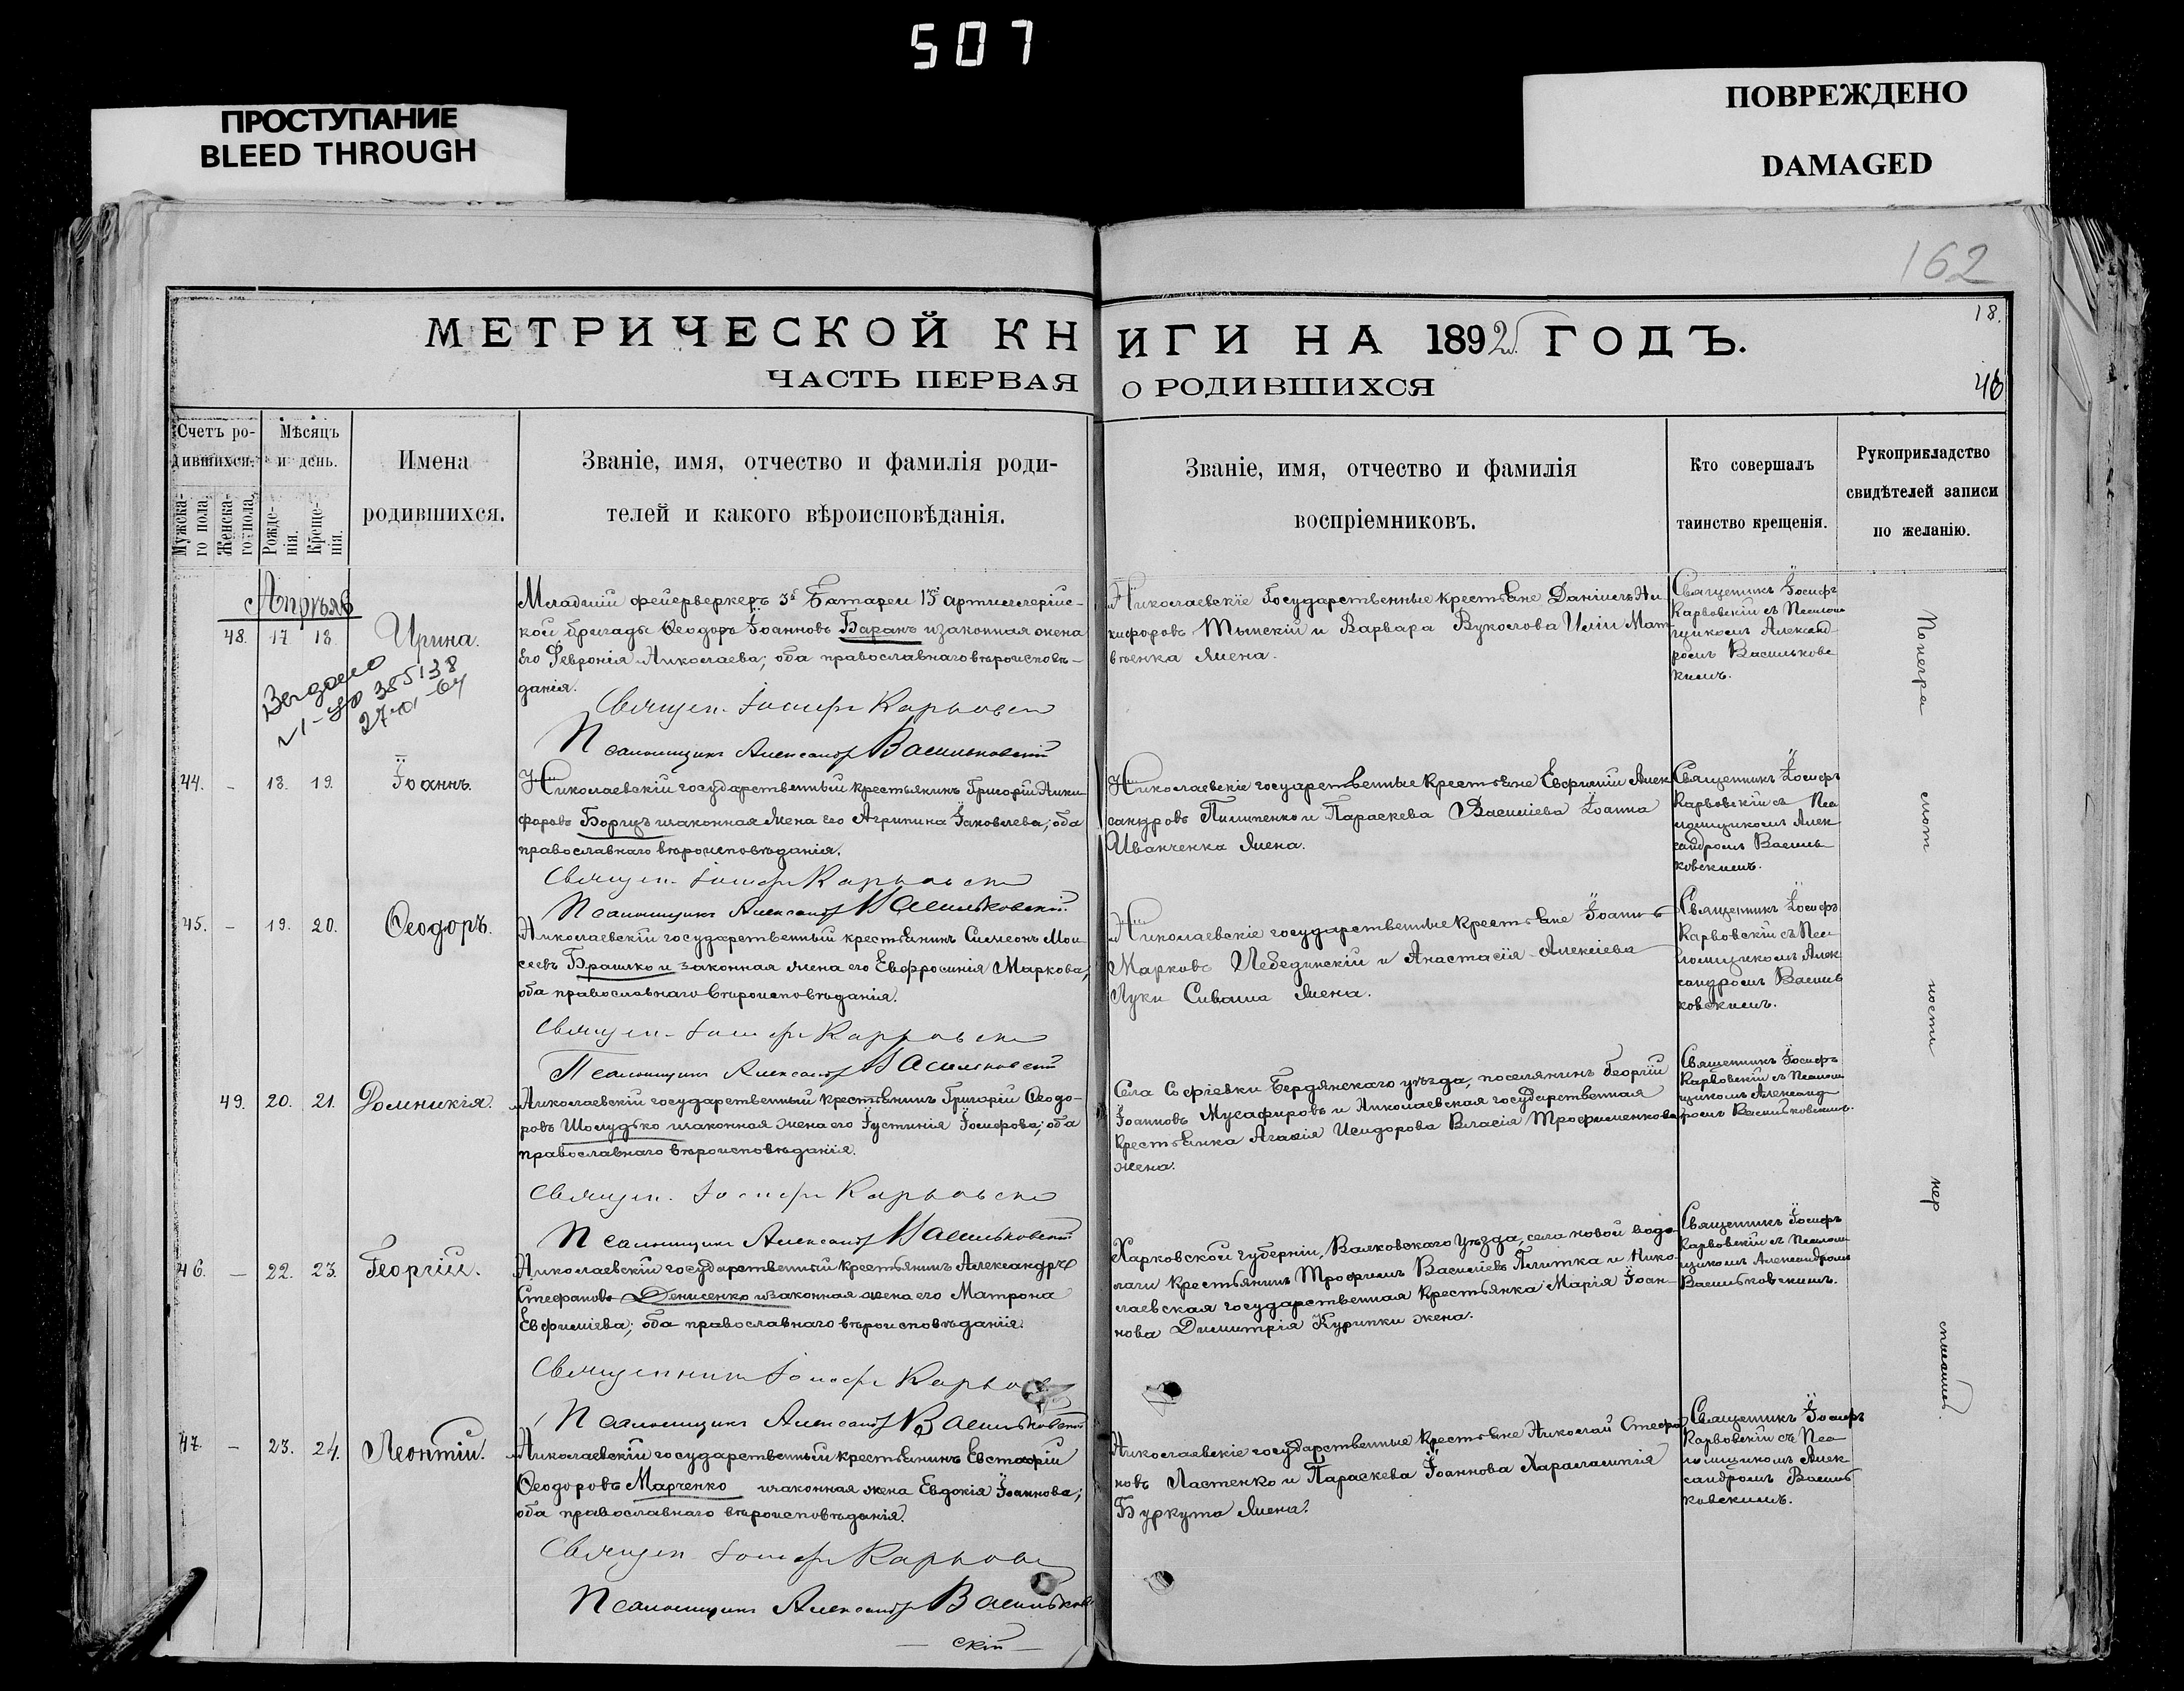 507
ПРОСТУПАНИЕ
BLEED THROUGH
ПОВРЕЖДЕНО
DAMAGED
162
18.
МЕТРИЧЕСКОЙ КНИГИ НА 1892 ГОДЪ.
ЧАСТЬ ПЕРВАЯ О РОДИВШИХСЯ
Счетъ ро-
дившихся.
Мужска-
го пола.
Женска-
го пола.
Мѣсяцъ
и день.
Рожде-
нія.
Креще-
нія.
Имена
родившихся.
Званіе, имя, отчество и фамилія роди-
телей и какого вѣроисповѣданія.
Званіе, имя, отчество и фамилія
воспріемниковъ.
Кто совершалъ
таинство крещенія.
Рукоприкладство
свидѣтелей записи
по желанію.
Апрѣль
48. 17 18. Ирина.
Младшій фейерверкеръ 3й Батареи 13й артиллерійс-
кой бригады Ѳеодоръ Іоанновъ Баранъ и законная жена
его Февронія Николаева; оба православнаго вѣроисповѣ-
данія.
Священ. Іосифъ Карвовскій
Псаломщикъ Александръ Васильковскій
Николаевскіе Государственные крестьяне Даніилъ Ни-
кифоровъ Тынскій и Варвара Вуколова Иліи Мат-
вѣенка жена.
Священникъ Іосифъ
Карвовскій съ Псалом-
щикомъ Александ-
ромъ Васильковс-
кимъ.
44. - 18. 19. Іоаннъ.
Николаевскій государственный крестьянинъ Григорій Ники-
форовъ Борщъ и законная жена его Агрипина Іаковлева; оба
православнаго вѣроисповѣданія.
Священ. Іосифъ Карвовскій
Псаломщикъ Александръ Васильковскій
Николаевскіе государственные крестьяне Евфимій Алек-
сандровъ Пилипенко и Параскева Василіева Іоанна
Иванченка жена.
Священникъ Іосифъ
Карвовскій съ Пса-
ломщикомъ Алек-
сандромъ Василь-
ковскимъ.
45. - 19. 20. Ѳеодоръ.
Николаевскій государственный крестьянинъ Симеонъ Мои-
сеевъ Брашко и законная жена его Евфросинія Маркова;
оба православнаго вѣроисповѣданія.
Священ. Іосифъ Карвовскій
Псаломщикъ Александръ Васильковскій
Николаевскіе государственные крестьяне Іоаннъ
Марковъ Лебединскій и Анастасія Алексіева
Луки Сиваша жена.
Священникъ Іосифъ
Карвовскій съ Пса-
ломщикомъ Алек-
сандромъ Василь-
ковскимъ.
49. 20. 21. Домникія.
Николаевскій государственный крестьянинъ Григорій Ѳеодо-
ровъ Шолудько и законная жена его Іустинія Іосифова; оба
православнаго вѣроисповѣданія.
Священ. Іосифъ Карвовскій
Псаломщикъ Александръ Васильковскій
Села Софіевки Бердянскаго уѣзда, поселянинъ Георгій
Іоанновъ Мусафировъ и Николаевская государственная
крестьянка Агафія Исидорова Власія Трофименкова
жена.
Священникъ Іосифъ
Карвовскій съ Псалом-
щикомъ Александ-
ромъ Васильковскимъ.
46. - 22. 23. Георгій.
Николаевскій государственный крестьянинъ Александръ
Стефановъ Денисенко и законная жена его Матрона
Евфиміева; оба православнаго вѣроисповѣданія.
Священникъ Іосифъ Карвовскій
Псаломщикъ Александръ Васильковскій
Харковской губерніи, Валковскаго уѣзда, села новой водо-
лаги крестьянинъ Трофимъ Василіевъ Плитка и Нико-
лаевская государственная крестьянка Марія Іоан-
нова Димитрія Курипки жена.
Священникъ Іосифъ
Карвовскій съ Псалом-
щикомъ Александромъ
Васильковскимъ.
47. - 23. 24. Леонтій.
Николаевскій государственный крестьянинъ Евстафій
Ѳеодоровъ Марченко и законная жена Евдокія Іоаннова;
оба православнаго вѣроисповѣданія.
Священ. Іосифъ Карвовс
Псаломщикъ Александръ Васильков-
скій
Николаевскіе государственные крестьяне Николай Стефа-
новъ Ластенко и Параскева Іоаннова Харалампія
Буркута жена.
Священникъ Іосифъ
Карвовскій съ Пса-
ломщикомъ Алек-
сандромъ Василь-
ковскимъ.